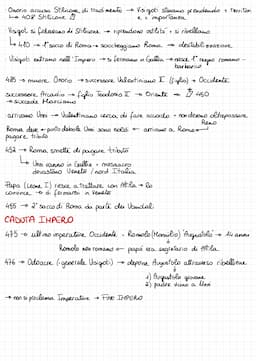 Onorio accusa Stilicone di tradimento → Visigoti stavano prendendo + territori
↳ 408 Stilicone e + importanza
Visigoti si fidavano di Stilicone → riprendono ostilità, si ribellano
↳ 410 → 1° sacco di Roma → saccheggiano Roma → destabilizzazione
Visigoti entrano nell'Impero → si fermano in Gallia → nasce 1° regno romano-
barbarico
423 → muore Onorio → successore Valentiniano (figlio) → Occidente
successore Arcadio → figlio Teodosio II → Oriente → 450
→ succede Marciano
arrivano Unni → Valentiniano cerca di fare accordo - non devono oltrepassare
Reno
Roma deve pagare Unni sennò ← arrivano a Roma ←
pagare tributo
452 → Roma smette di pagare tributo
↳ Unni vanno in Gallia - massacro
devastano Veneto / nord Italia
Papa (Leone I) riesce a trattare con Attila → lo
convince → si fermarsi in Veneto
455 → 2° sacco di Roma da parte dei Vandali
CADUTA IMPERO
475 → ultimo imperatore Occidente - Romolo (Momolo) Augustolo → 14 anni
Romolo non romano ← papà era segretario di Attila
476 → Odoacre (generale Visigoti) → depone Augustolo attraverso ribellione
1) Augustolo giovane
2) padre vicino a Unni
→ non si proclama Imperatore → FINE IMPERO